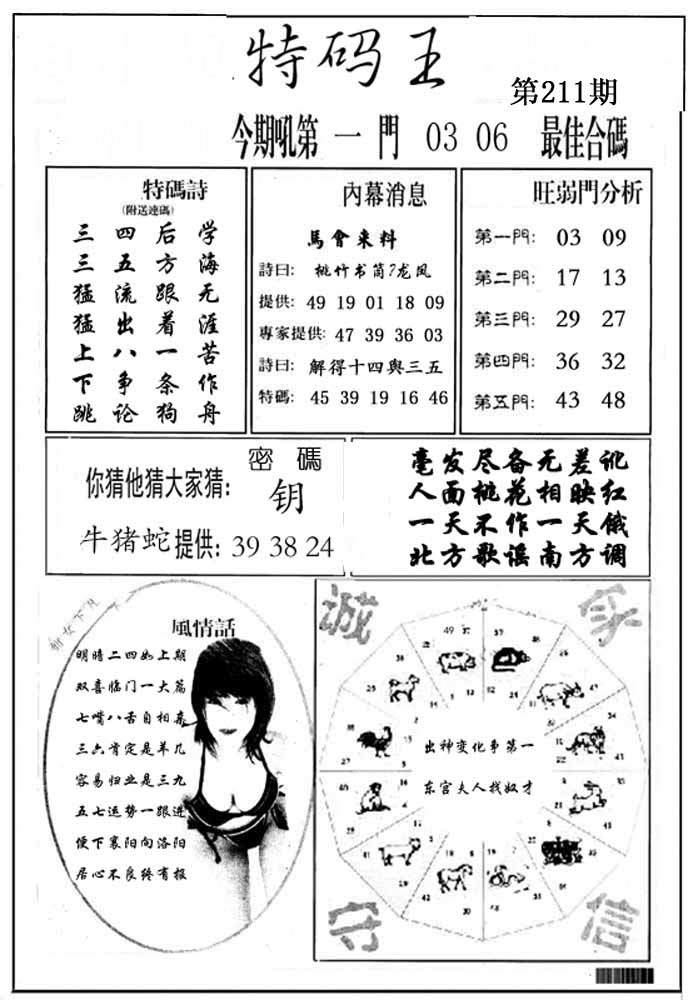 特码王
第211期
今期吼第一門 03 06 最佳合碼
特碼詩
(附送連碼)
三四后学
三五方海
猛流跟无
猛出着涯
上八一苦
下争条作
跳论狗舟
內幕消息
馬會来料
詩曰: 桃竹书简?龙凤
提供: 49 19 01 18 09
專家提供: 47 39 36 03
詩曰: 解得十四與三五
特碼: 45 39 19 16 46
旺弱門分析
第一門: 03 09
第二門: 17 13
第三門: 29 27
第四門: 36 32
第五門: 43 48
密碼
你猜他猜大家猜: 钥
牛猪蛇提供: 39 38 24
毫发尽备无差讹
人面桃花相映红
一天不作一天饿
北方歌谣南方调
女下凡
風情話
明暗二四如上期
双喜临门一大篇
七嘴八舌自相
三六肯定是羊几
容易归业是三九
五七运势一跟进
便下襄阳向洛阳
居心不良终有报
誠
守
信
49 37
出神变化事第一
东宫夫人找奴才